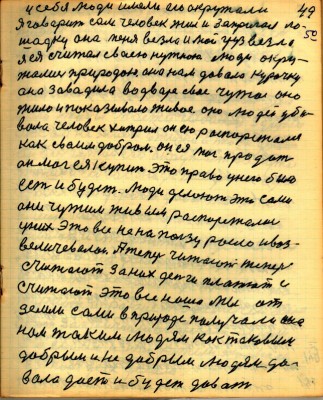 49
50
у себя люди имели его окружали
я говорит сам человек жил и запрягал ло-
шадку она меня везла и мой груз везла
я ся считал своею нужною люди окру-
жались природою, она нам давала курочку
она заводила во дворе свое чужое оно
жило и показывало живое оно людей уби-
вала человек хитрил он ею распоряжался
как своим добром. он ся мог продать
он мог ся купить это право у него было
есть и будет. люди делают это сами
они чужим живым распоряжались
у них это все не на пользу росло и воз-
величевалось. А теперь читают теперь
считают за них деньги платят и
считают это все наше мы от
земли сами в природе получали она
нам таким людям как таковым
добрым и не добрым людям да-
вала дает и будет давать